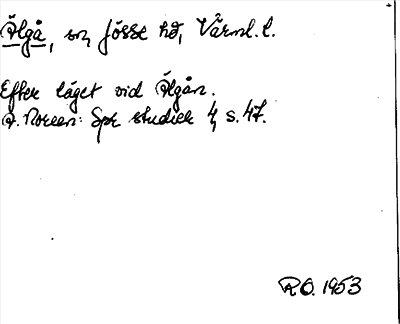 Älgå, sn, Jösse hd, Värml. l.
Efter läget vid Älgån.
A. Noreen: Spr studier 4, s. 47.
R O. 1953